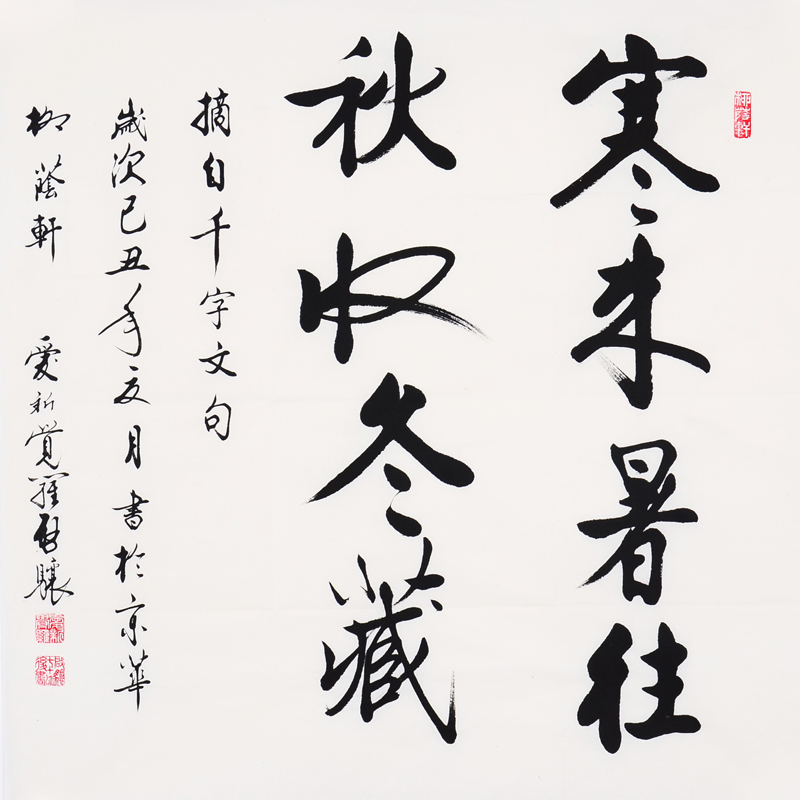 寒来暑往
秋收冬藏
摘自千字文句
歲次己丑年亥月書於京華
柳蔭軒 愛新覺羅啟驤
柳蔭軒